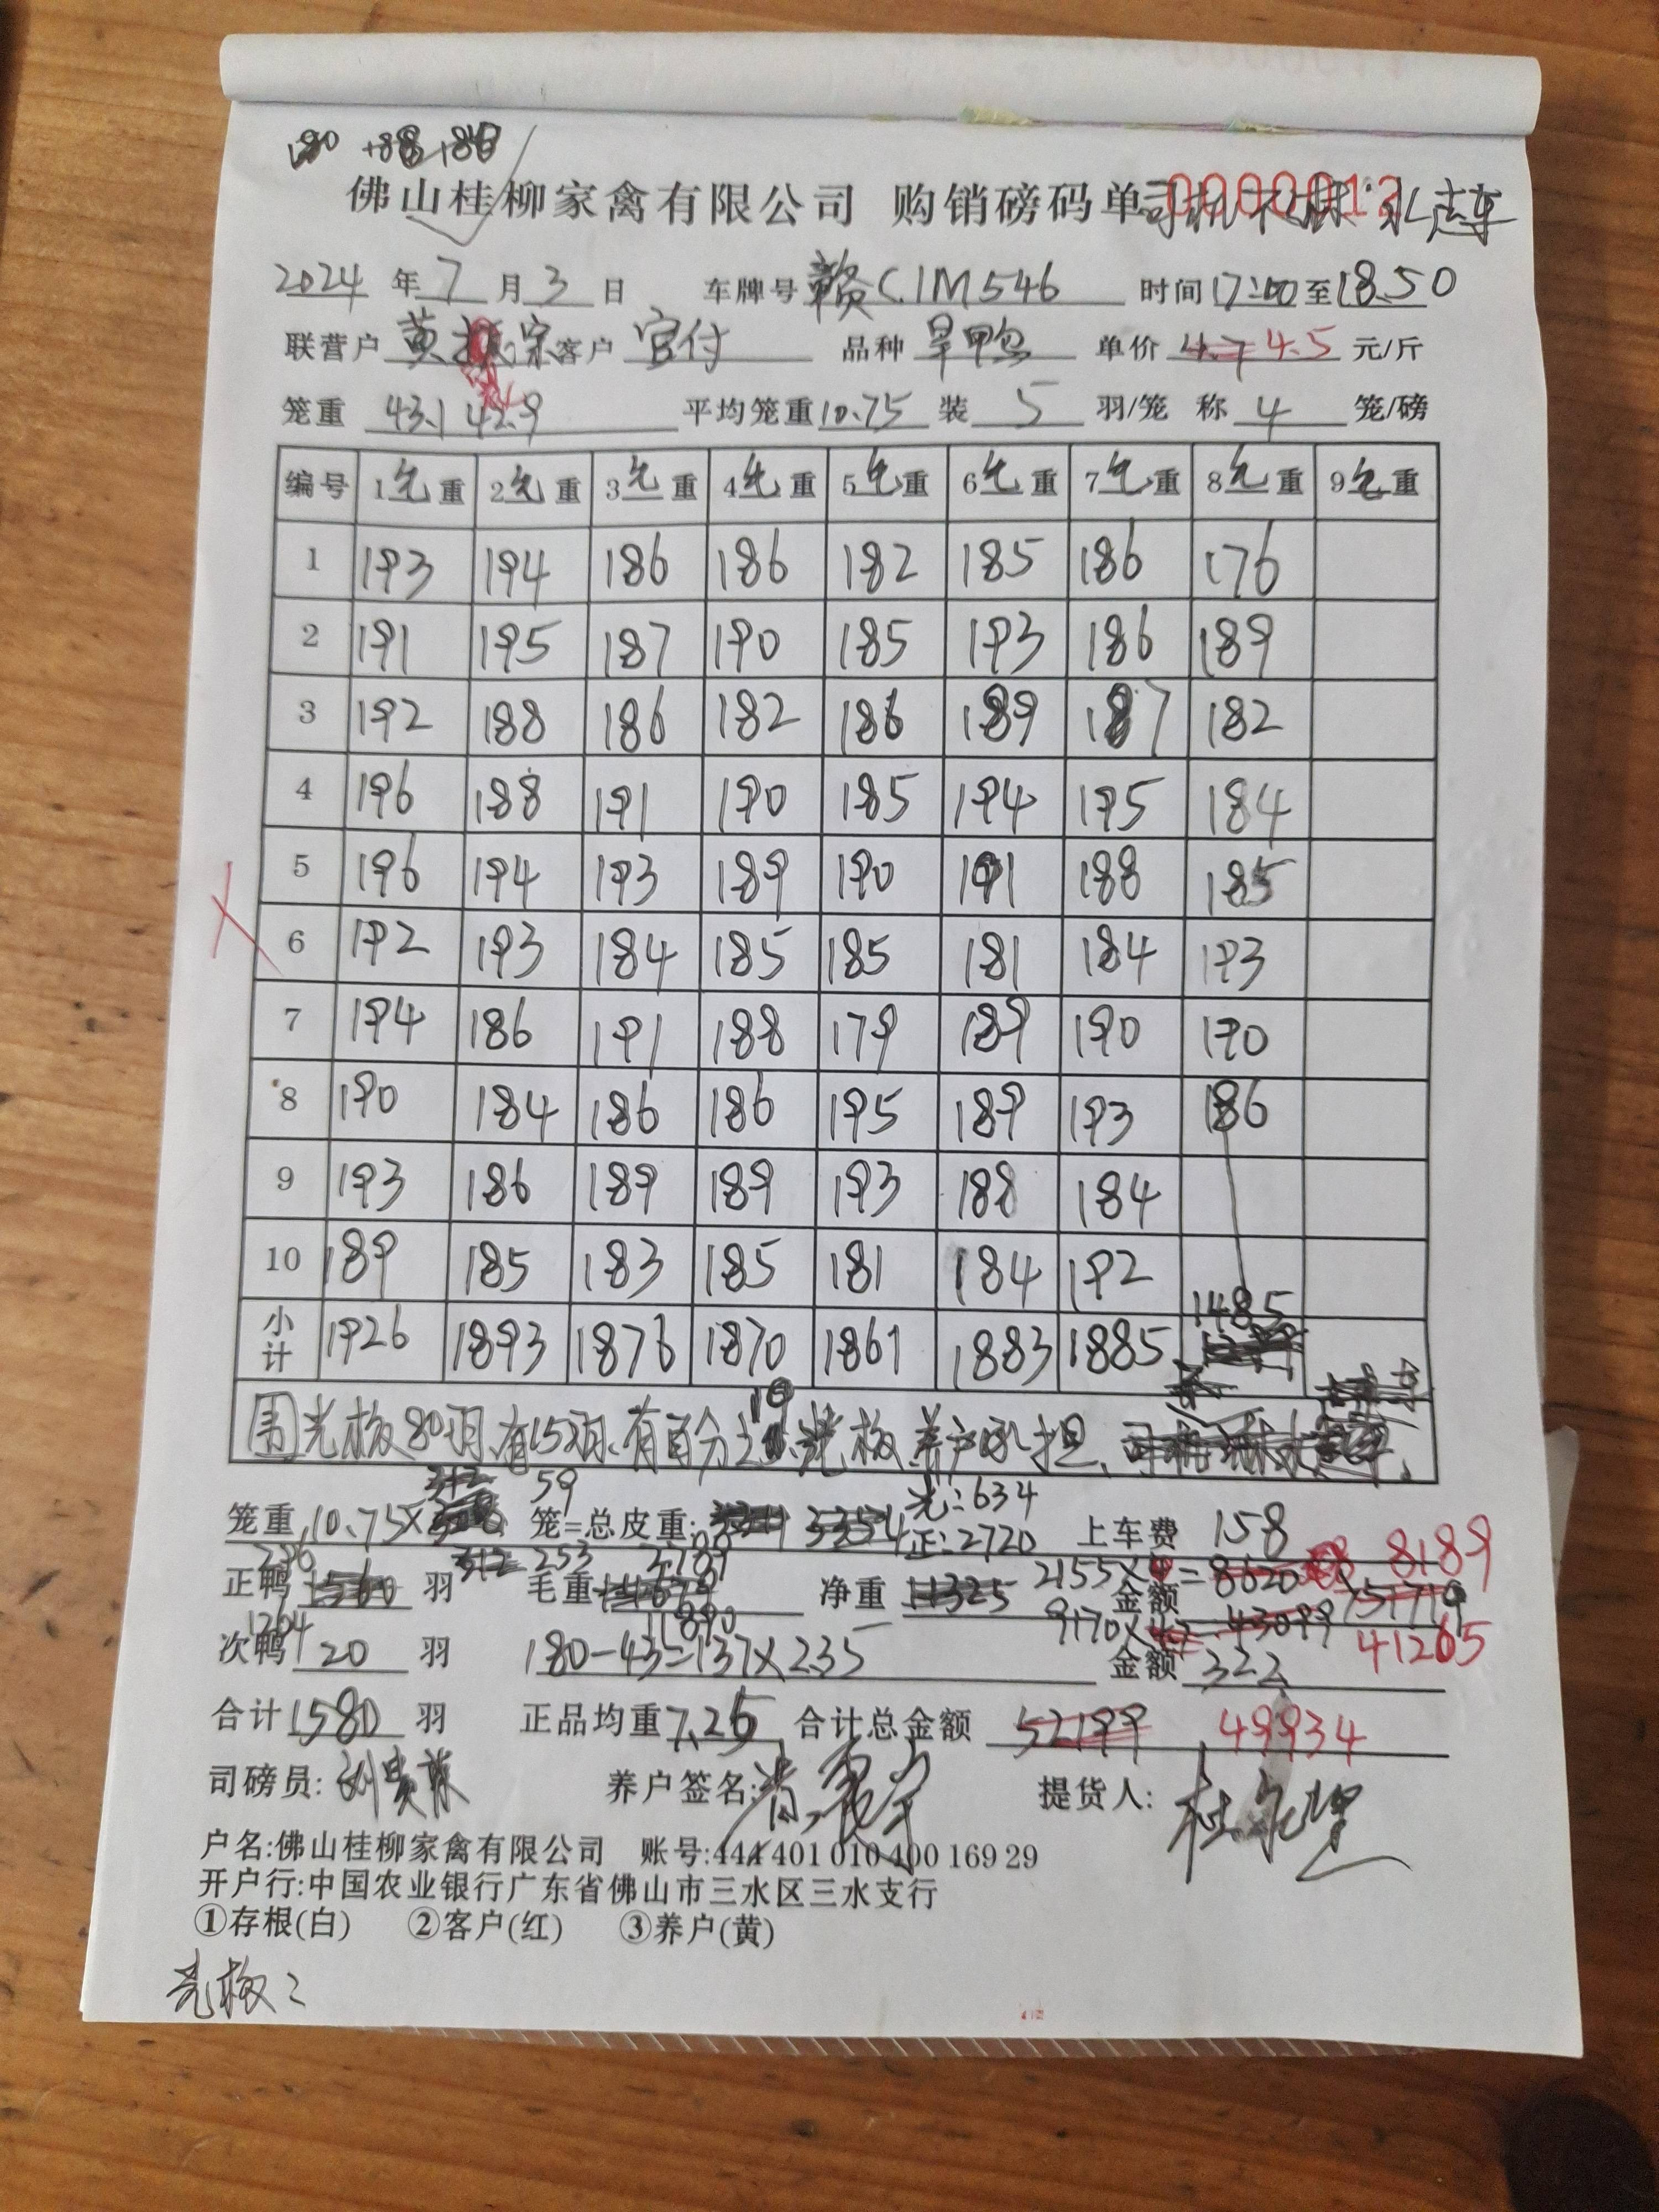 佛山桂柳家禽有限公司 购销磅码单
2024 年 7 月 3 日 车牌号 赣C.1M546 时间 17:00 至 18.50
联营户 黄 宗 客户 官付 品种 旱鸭 单价 4.7 4.5 元/斤
笼重 43.1 42.9 平均笼重 10.75 装 5 羽/笼 称 4 笼/磅
编号 1毛重 2毛重 3毛重 4毛重 5毛重 6毛重 7毛重 8毛重 9毛重
1 193 194 186 186 182 185 186 176
2 191 195 187 190 185 193 186 189
3 192 188 186 182 186 189 187 182
4 196 188 191 190 185 194 195 184
5 196 194 193 189 190 191 188 185
6 192 193 184 185 185 181 184 193
7 194 186 191 188 179 189 190 190
8 190 184 186 186 195 189 193 186
9 193 186 189 189 193 188 184
10 189 185 183 185 181 184 192
小计 1926 1893 1876 1870 1861 1883 1885 1485
光板80羽、有15羽、有百分之10光板养户承担、
312 59 光:634
笼重 10.75× 笼=总皮重: 3354 正:2720 上车费 158
312 253 2789 2155× =8620 8189
正鸭 1560 羽 毛重 净重 11325 金额 51719
1264 11890 9170× 43099 41265
次鸭 20 羽 180-43=137×2.35 金额 322
合计 1580 羽 正品均重 7.26 合计总金额 52199 49934
司磅员: 养户签名: 提货人:
户名:佛山桂柳家禽有限公司 账号:444 401 010 400 169 29
开户行:中国农业银行广东省佛山市三水区三水支行
①存根(白) ②客户(红) ③养户(黄)
光板: